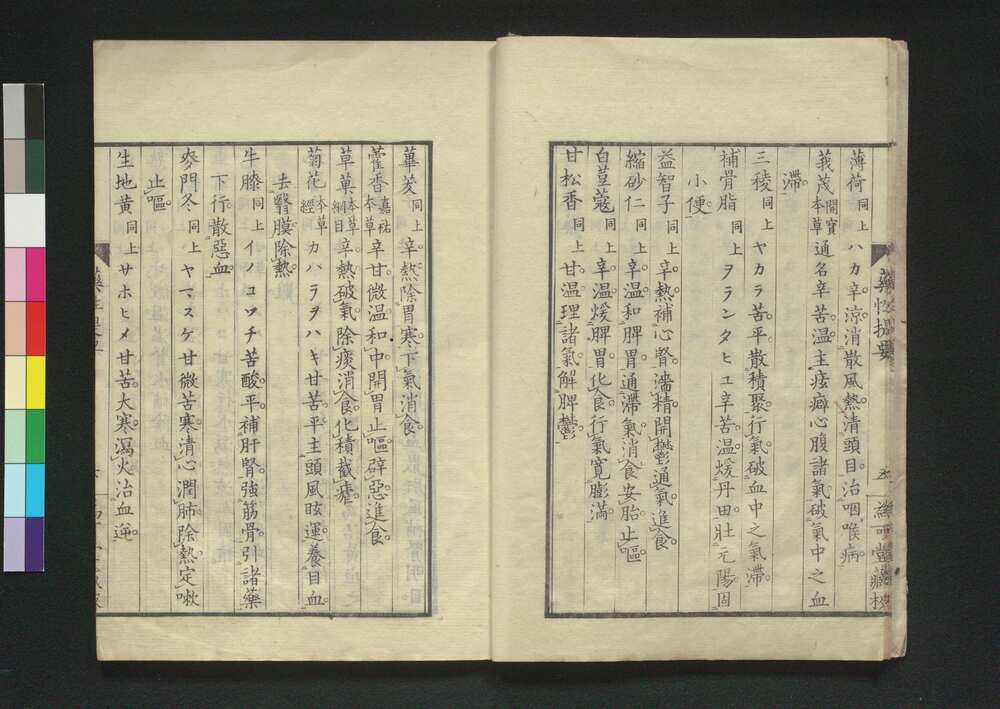 薄荷同上ハカ辛涼消散風熱清頭目治咽喉病
莪茂開寶本草通名辛苦温主痃癖心腹諸氣破氣中之血
滯
三稜同上ヤカラ苦平散積聚行氣破血中之氣滯
補骨脂同上ヲランタヒユ辛苦温煖丹田壯元陽固
小便
益智子同上辛熱補心腎濇精開鬱通氣進食
縮砂仁同上辛温和脾胃通滯氣消食安胎止嘔
白荳蔲同上辛温煖脾胃化食行氣寛膨滿
甘松香同上甘温理諸氣解脾鬱
藥性提要
蓽茇同上辛熱除胃寒下氣消食
藿香嘉祐本草辛甘微温和中開胃止嘔辟惡進食
草菓本草綱目辛熱破氣除痰消食化積截瘧
菊花本草經カハラヲハキ甘苦平主頭風眩運養目血
去瞖膜除熱
牛膝同上イノコツチ苦酸平補肝腎強筋骨引諸藥
下行散惡血
麥門冬同上ヤマスケ甘微苦寒清心潤肺除熱定嗽
止嘔
生地黄同上サホヒメ甘苦大寒瀉火治血逆